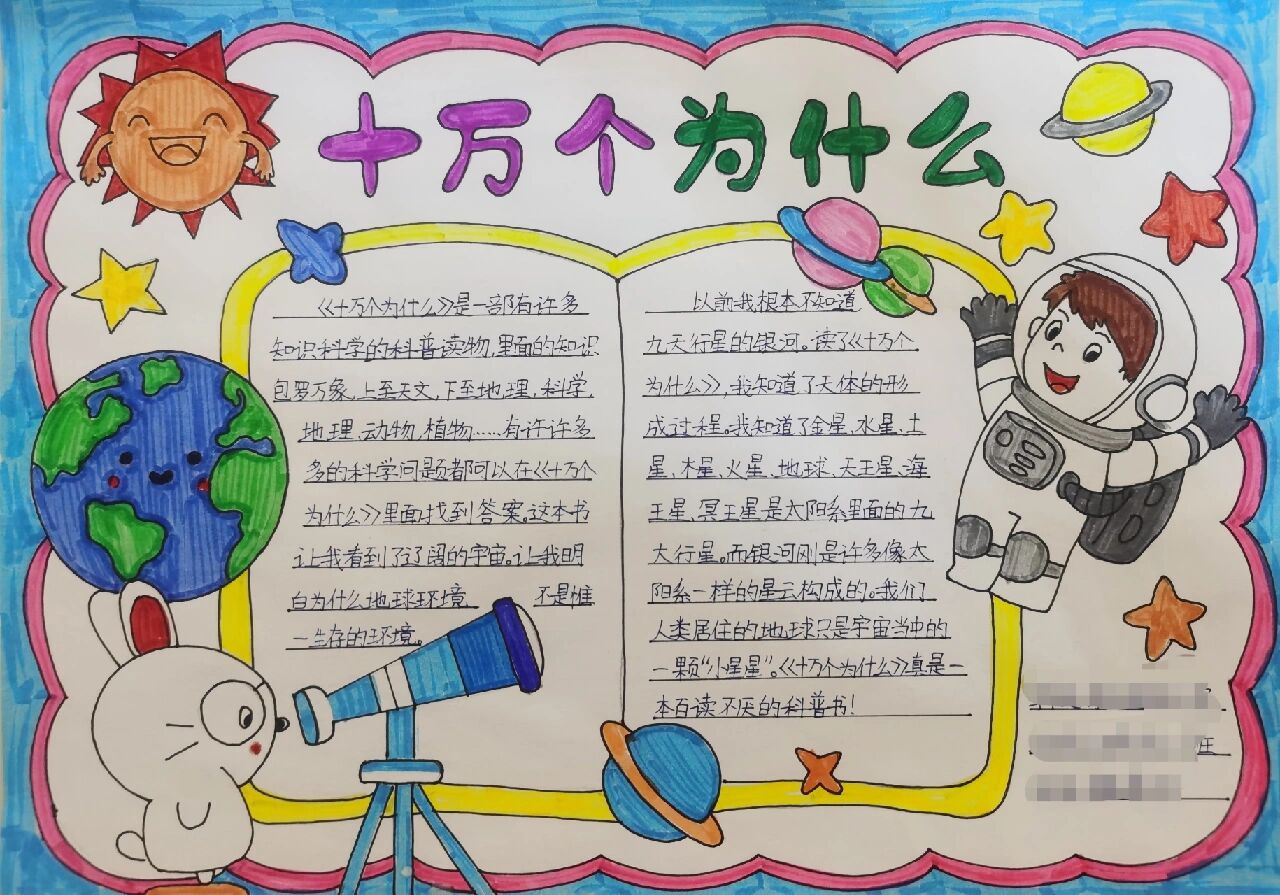 十万个为什么
《十万个为什么》是一部有许多
知识科学的科普读物,里面的知识
包罗万象,上至天文,下至地理,科学、
地理、动物、植物……有许许多
多的科学问题都可以在《十万个
为什么》里面找到答案。这本书
让我看到了辽阔的宇宙。让我明
白为什么地球环境 不是惟
一生存的环境。
以前我根本不知道
九天行星的银河。读了《十万个
为什么》,我知道了天体的形
成过程。我知道了金星、水星、土
星、木星、火星、地球、天王星、海
王星、冥王星是太阳系里面的九
大行星。而银河刚是许多像太
阳系一样的星云构成的。我们
人类居住的地球只是宇宙当中的
一颗“小星星”。《十万个为什么》真是一
本百读不厌的科普书!